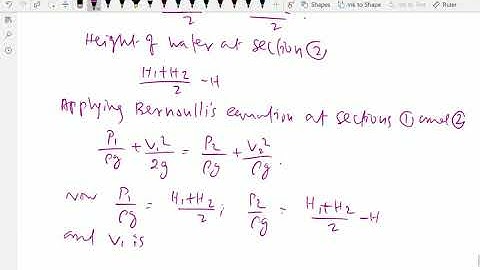 Shapes Ink to Shape Ruler
2 2
Height of water at section ②
H₁+H₂/2 - H
Applying Bernoulli's equation at sections ① and ②
P₁/ρg + V₁²/2g = P₂/ρg + V₂²/ρg.
now P₁/ρg = H₁+H₂/2 ; P₂/ρg = H₁+H₂/2 - H
and V₁ is